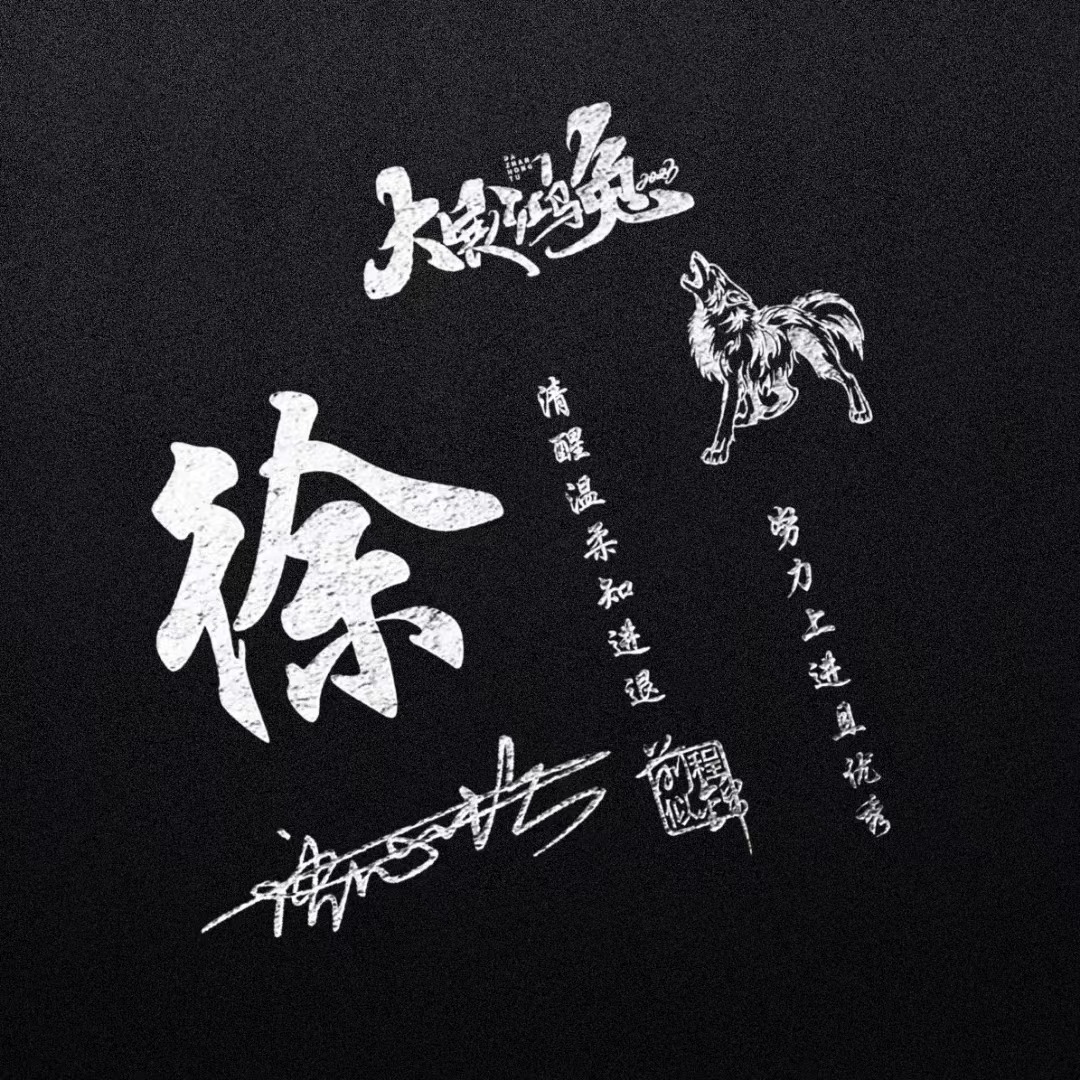 大展鸿兔
DA
ZHAN
HONG
TU
2023
徐
清醒温柔知进退
努力上进且优秀
前程
似锦